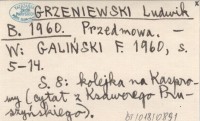 GRZENIEWSKI Ludwik
B. 1960. Przedmowa. —
W: GALIŃSKI F. 1960, s.
5-14.
S. 8: kolejka na Kaspro-
wy (cytat z Ksawerego Pru-
szyńskiego).